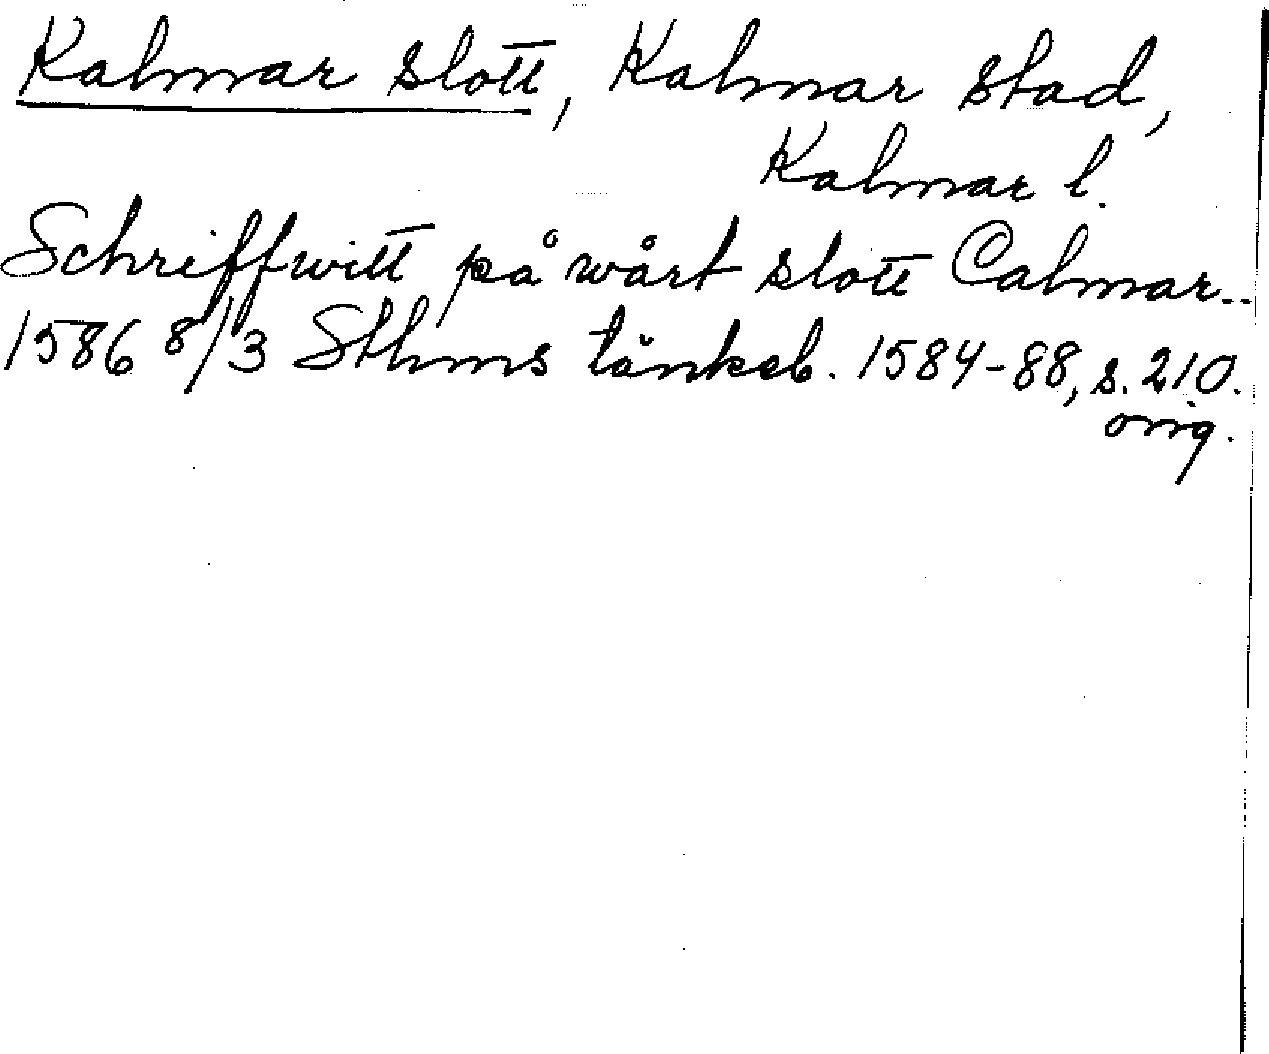 Kalmar slott, Kalmar stad,
Kalmar l.
Schriffwitt på wårt slott Calmar..
1586 8/3 Sthms tänkeb. 1584-88, s. 210.
orig.